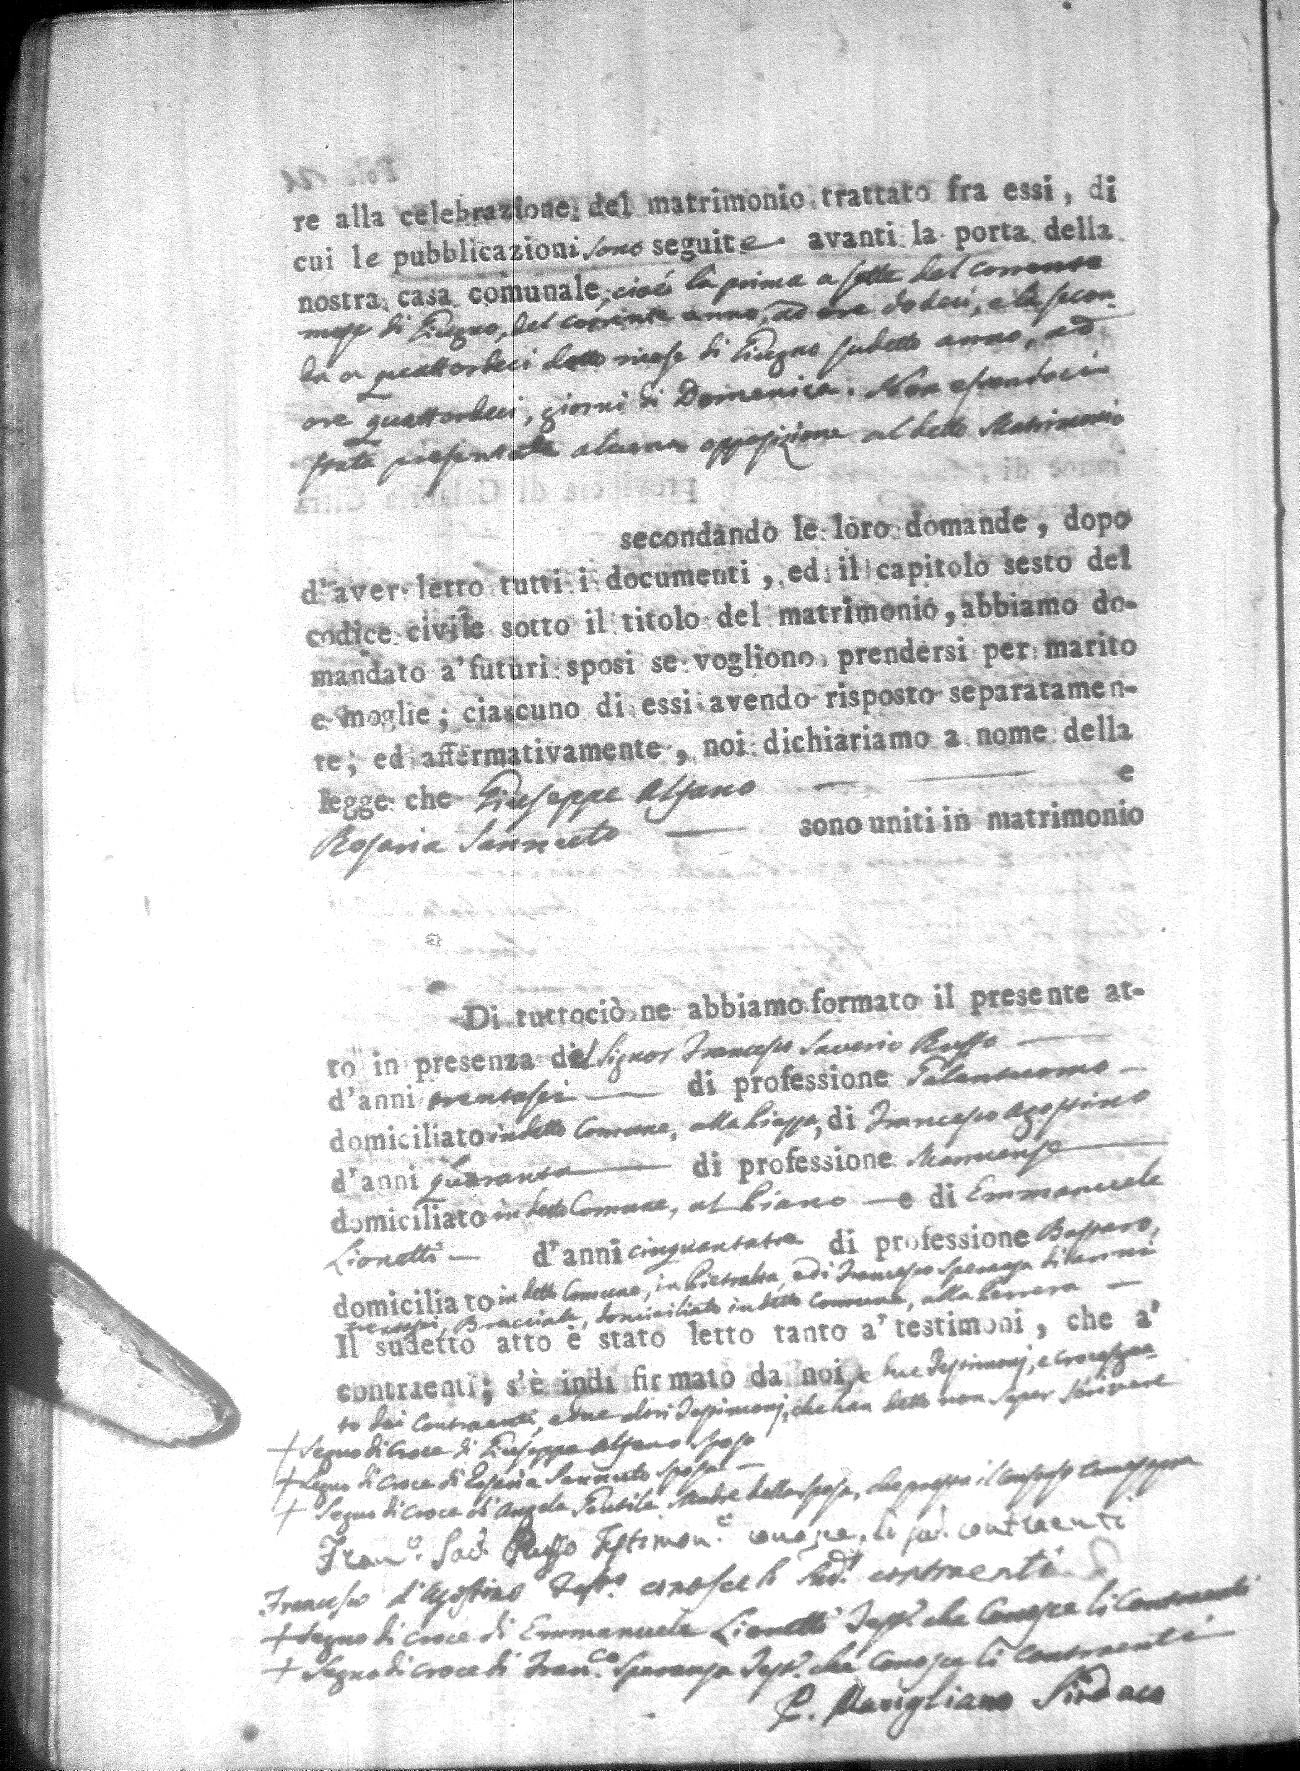 re alla celebrazione del matrimonio trattato fra essi, di
cui le pubblicazioni sono seguite avanti la porta della
nostra casa comunale, cioè la prima a sette del corrente
mese di Giugno, del corrente anno, ad ore dodeci, e la secon-
da a quattordeci detto mese di Giugno sudetto anno, ad
ore quattordeci, giorni di Domenica. Non essendoci
stata presentata alcuna opposizione al detto Matrimonio
secondando le loro domande, dopo
d'aver letto tutti i documenti, ed il capitolo sesto del
codice civile sotto il titolo del matrimonio, abbiamo do-
mandato a' futuri sposi se vogliono prendersi per marito
e moglie; ciascuno di essi avendo risposto separatamen-
te; ed affermativamente, noi dichiariamo a nome della
legge che Giuseppe Alfano e
Rosaria Sannuto sono uniti in matrimonio
Di tuttociò ne abbiamo formato il presente at-
to in presenza del Signor Francesco Saverio Ruffo
d'anni trentasei di professione Galantuomo
domiciliato in detto Comune, alla Piazza, di Francesco Agostino
d'anni quaranta di professione
domiciliato in detto Comune, al Piano e di Emmanuele
Lionetti d'anni cinquantatre di professione Bastaro,
domiciliato in detto Comune, in Pietralta, e di Francesco Speranza di anni
Bracciale, domiciliato in detto Comune, alla
Il sudetto atto è stato letto tanto a' testimoni, che a'
contraenti; s'è indi firmato da noi, e due Testimonj, e crocesegna-
to dai Contraenti, e due altri Testimonj, che han detto non saper scrivere
+ Segno di croce di Giuseppe Alfano sposo
+ Segno di croce di Rosaria Sannuto sposa
+ Segno di croce di Angela Gentile Madre della sposa, che presta il consenso
Fran.o Sav. Ruffo Testimon.o conosce li contraenti
Francesco d'Agostino Test.o conosce li Sud.i contraenti
+ Segno di croce di Emmanuele Lionetti Test.o che Conosce li Contraenti
+ Segno di croce di Fran.co Speranza Test.o che Conosce li Contraenti
Marigliano Sindaco